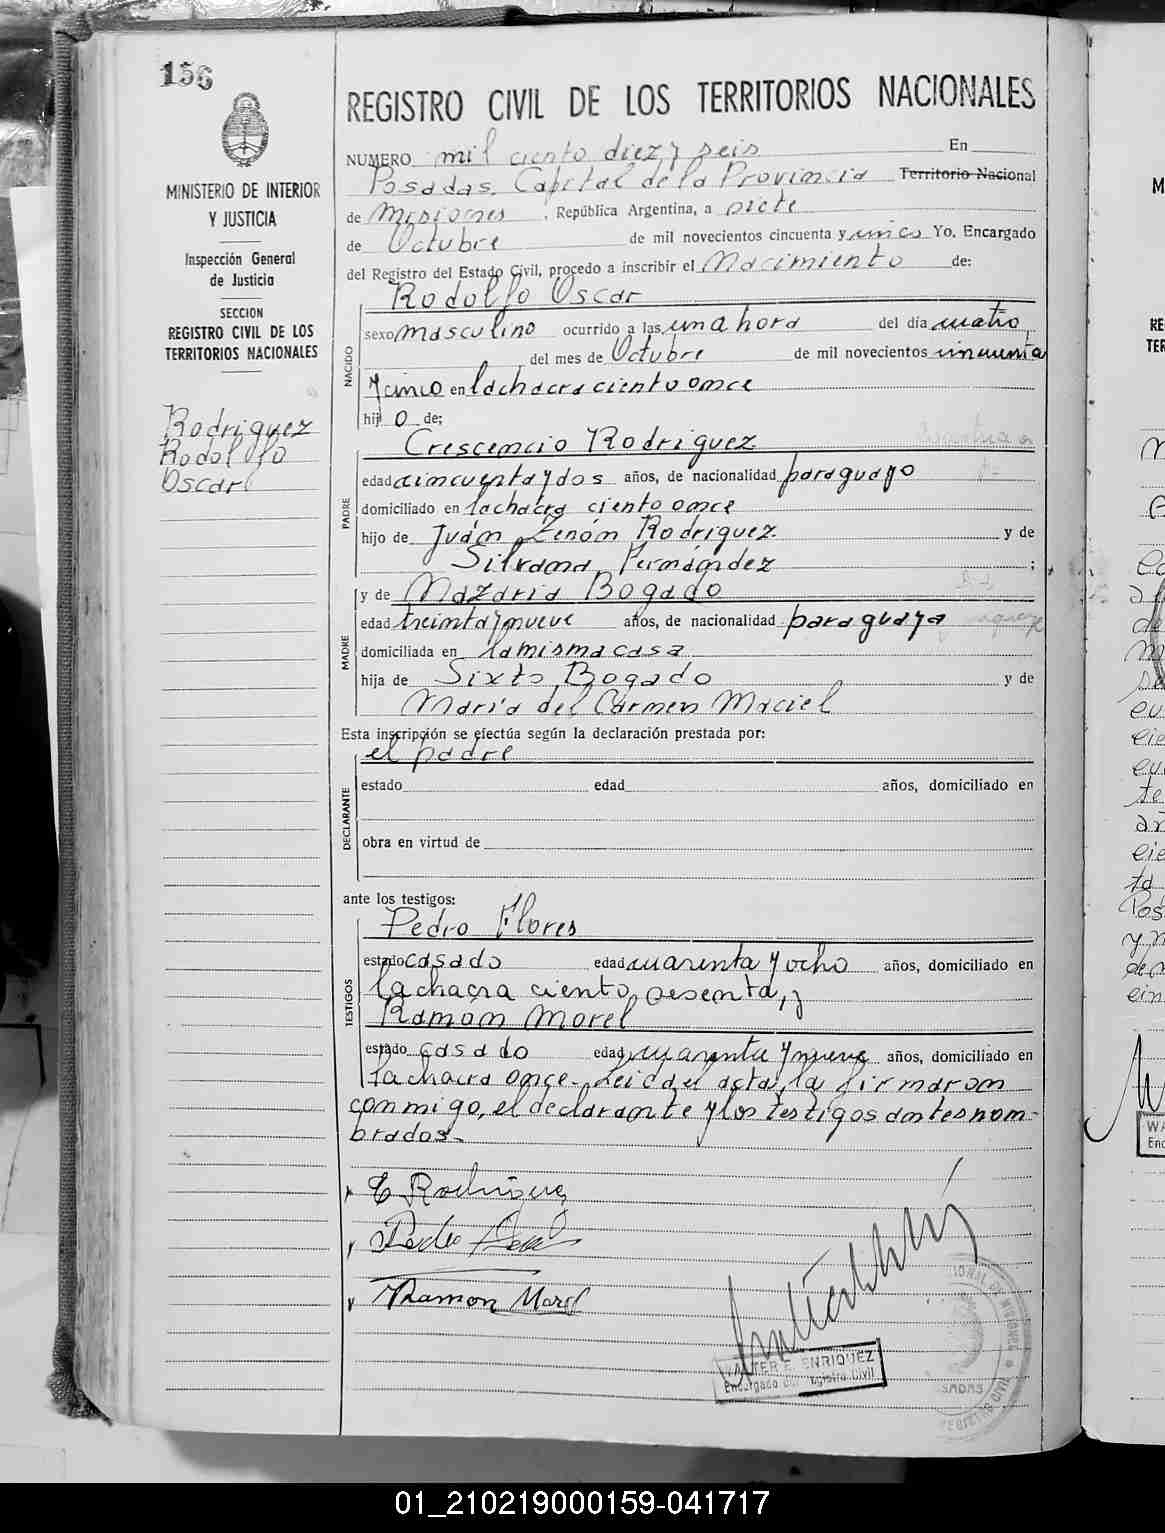 156
MINISTERIO DE INTERIOR
Y JUSTICIA
Inspección General
de Justicia
SECCION
REGISTRO CIVIL DE LOS
TERRITORIOS NACIONALES
Rodriguez
Rodolfo
Oscar
REGISTRO CIVIL DE LOS TERRITORIOS NACIONALES
NUMERO mil ciento diez y seis En
Posadas, Capital de la Provincia Territorio Nacional
de Misiones, República Argentina, a siete
de Octubre de mil novecientos cincuenta y cinco Yo, Encargado
del Registro del Estado Civil, procedo a inscribir el Nacimiento de:
Rodolfo Oscar
NACIDO
sexo masculino ocurrido a las una hora del día cuatro
del mes de Octubre de mil novecientos cincuenta
y cinco en la chacra ciento once
hijo de:
Crescencio Rodriguez
PADRE
edad cincuenta y dos años, de nacionalidad paraguayo
domiciliado en la chacra ciento once
hijo de Juán Zenón Rodriguez y de
Silvana Fernández ;
y de Nazaria Bogado
MADRE
edad treinta y nueve años, de nacionalidad paraguaya
domiciliada en la misma casa
hija de Sixto Bogado y de
María del Carmen Maciel
Esta inscripción se efectúa según la declaración prestada por:
el padre
DECLARANTE
estado edad años, domiciliado en
obra en virtud de
ante los testigos:
Pedro Flores
TESTIGOS
estado casado edad cuarenta y ocho años, domiciliado en
la chacra ciento sesenta, y
Ramón Morel
estado casado edad cuarenta y nueve años, domiciliado en
la chacra once- Leida el acta, la firmaron
conmigo, el declarante y los testigos antes nom-
brados-
C Rodriguez
Pedro
Ramon Morel
WALTER E. ENRIQUEZ
Encargado del Registro Civil
REGISTRO CIVIL
01_210219000159-041717